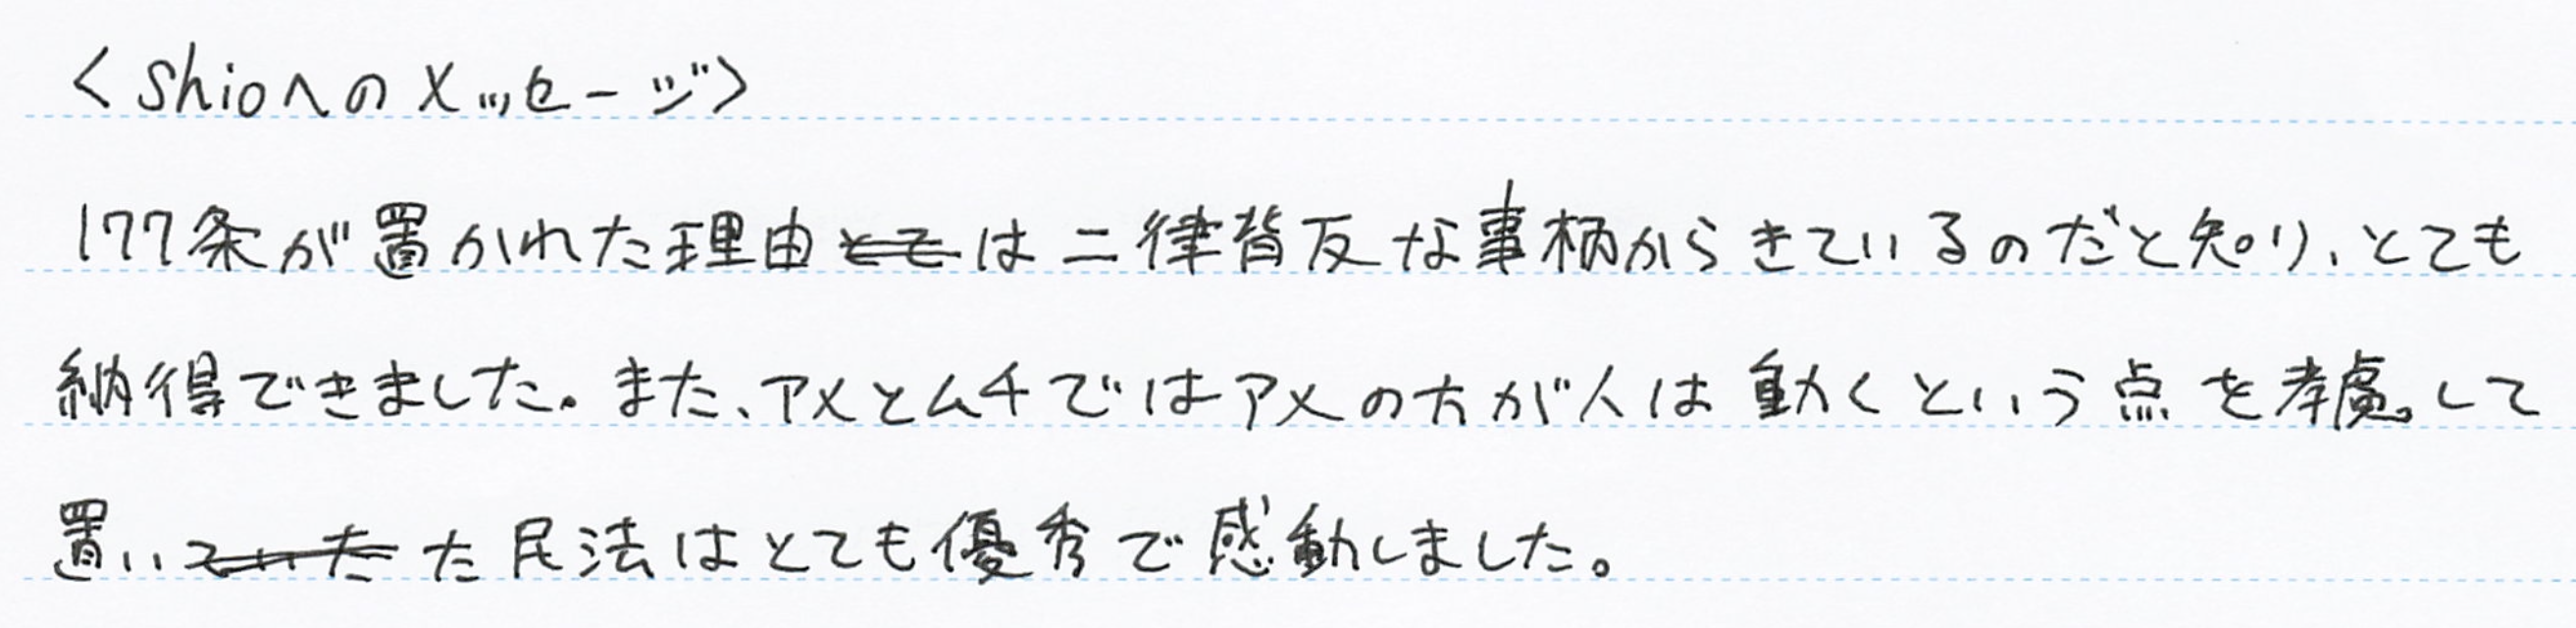 <shioへのメッセージ>
177条が置かれた理由は二律背反な事柄からきているのだと知り、とても
納得できました。また、アメとムチではアメの方が人は動くという点を考慮して
置いた民法はとても優秀で感動しました。